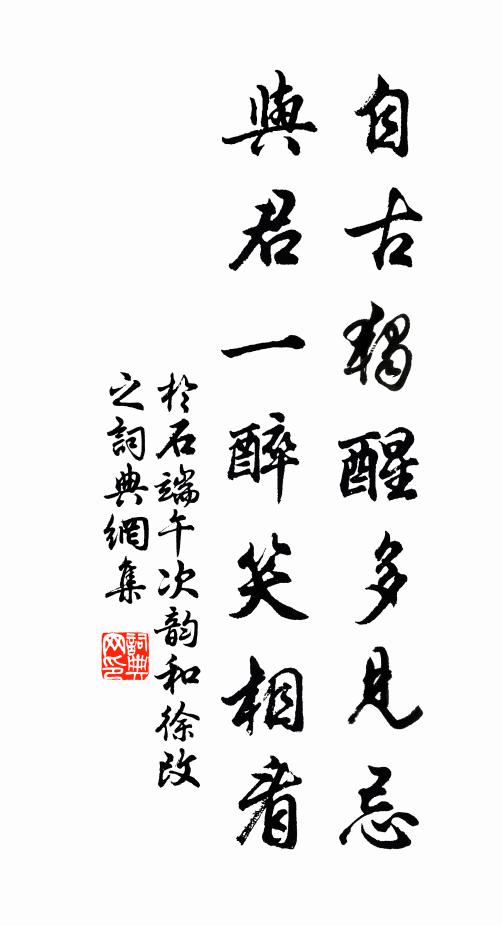 自古獨醒多見忌
與君一醉笑相看
於石端午次韵和徐改
之詞典網集
詞典
网印